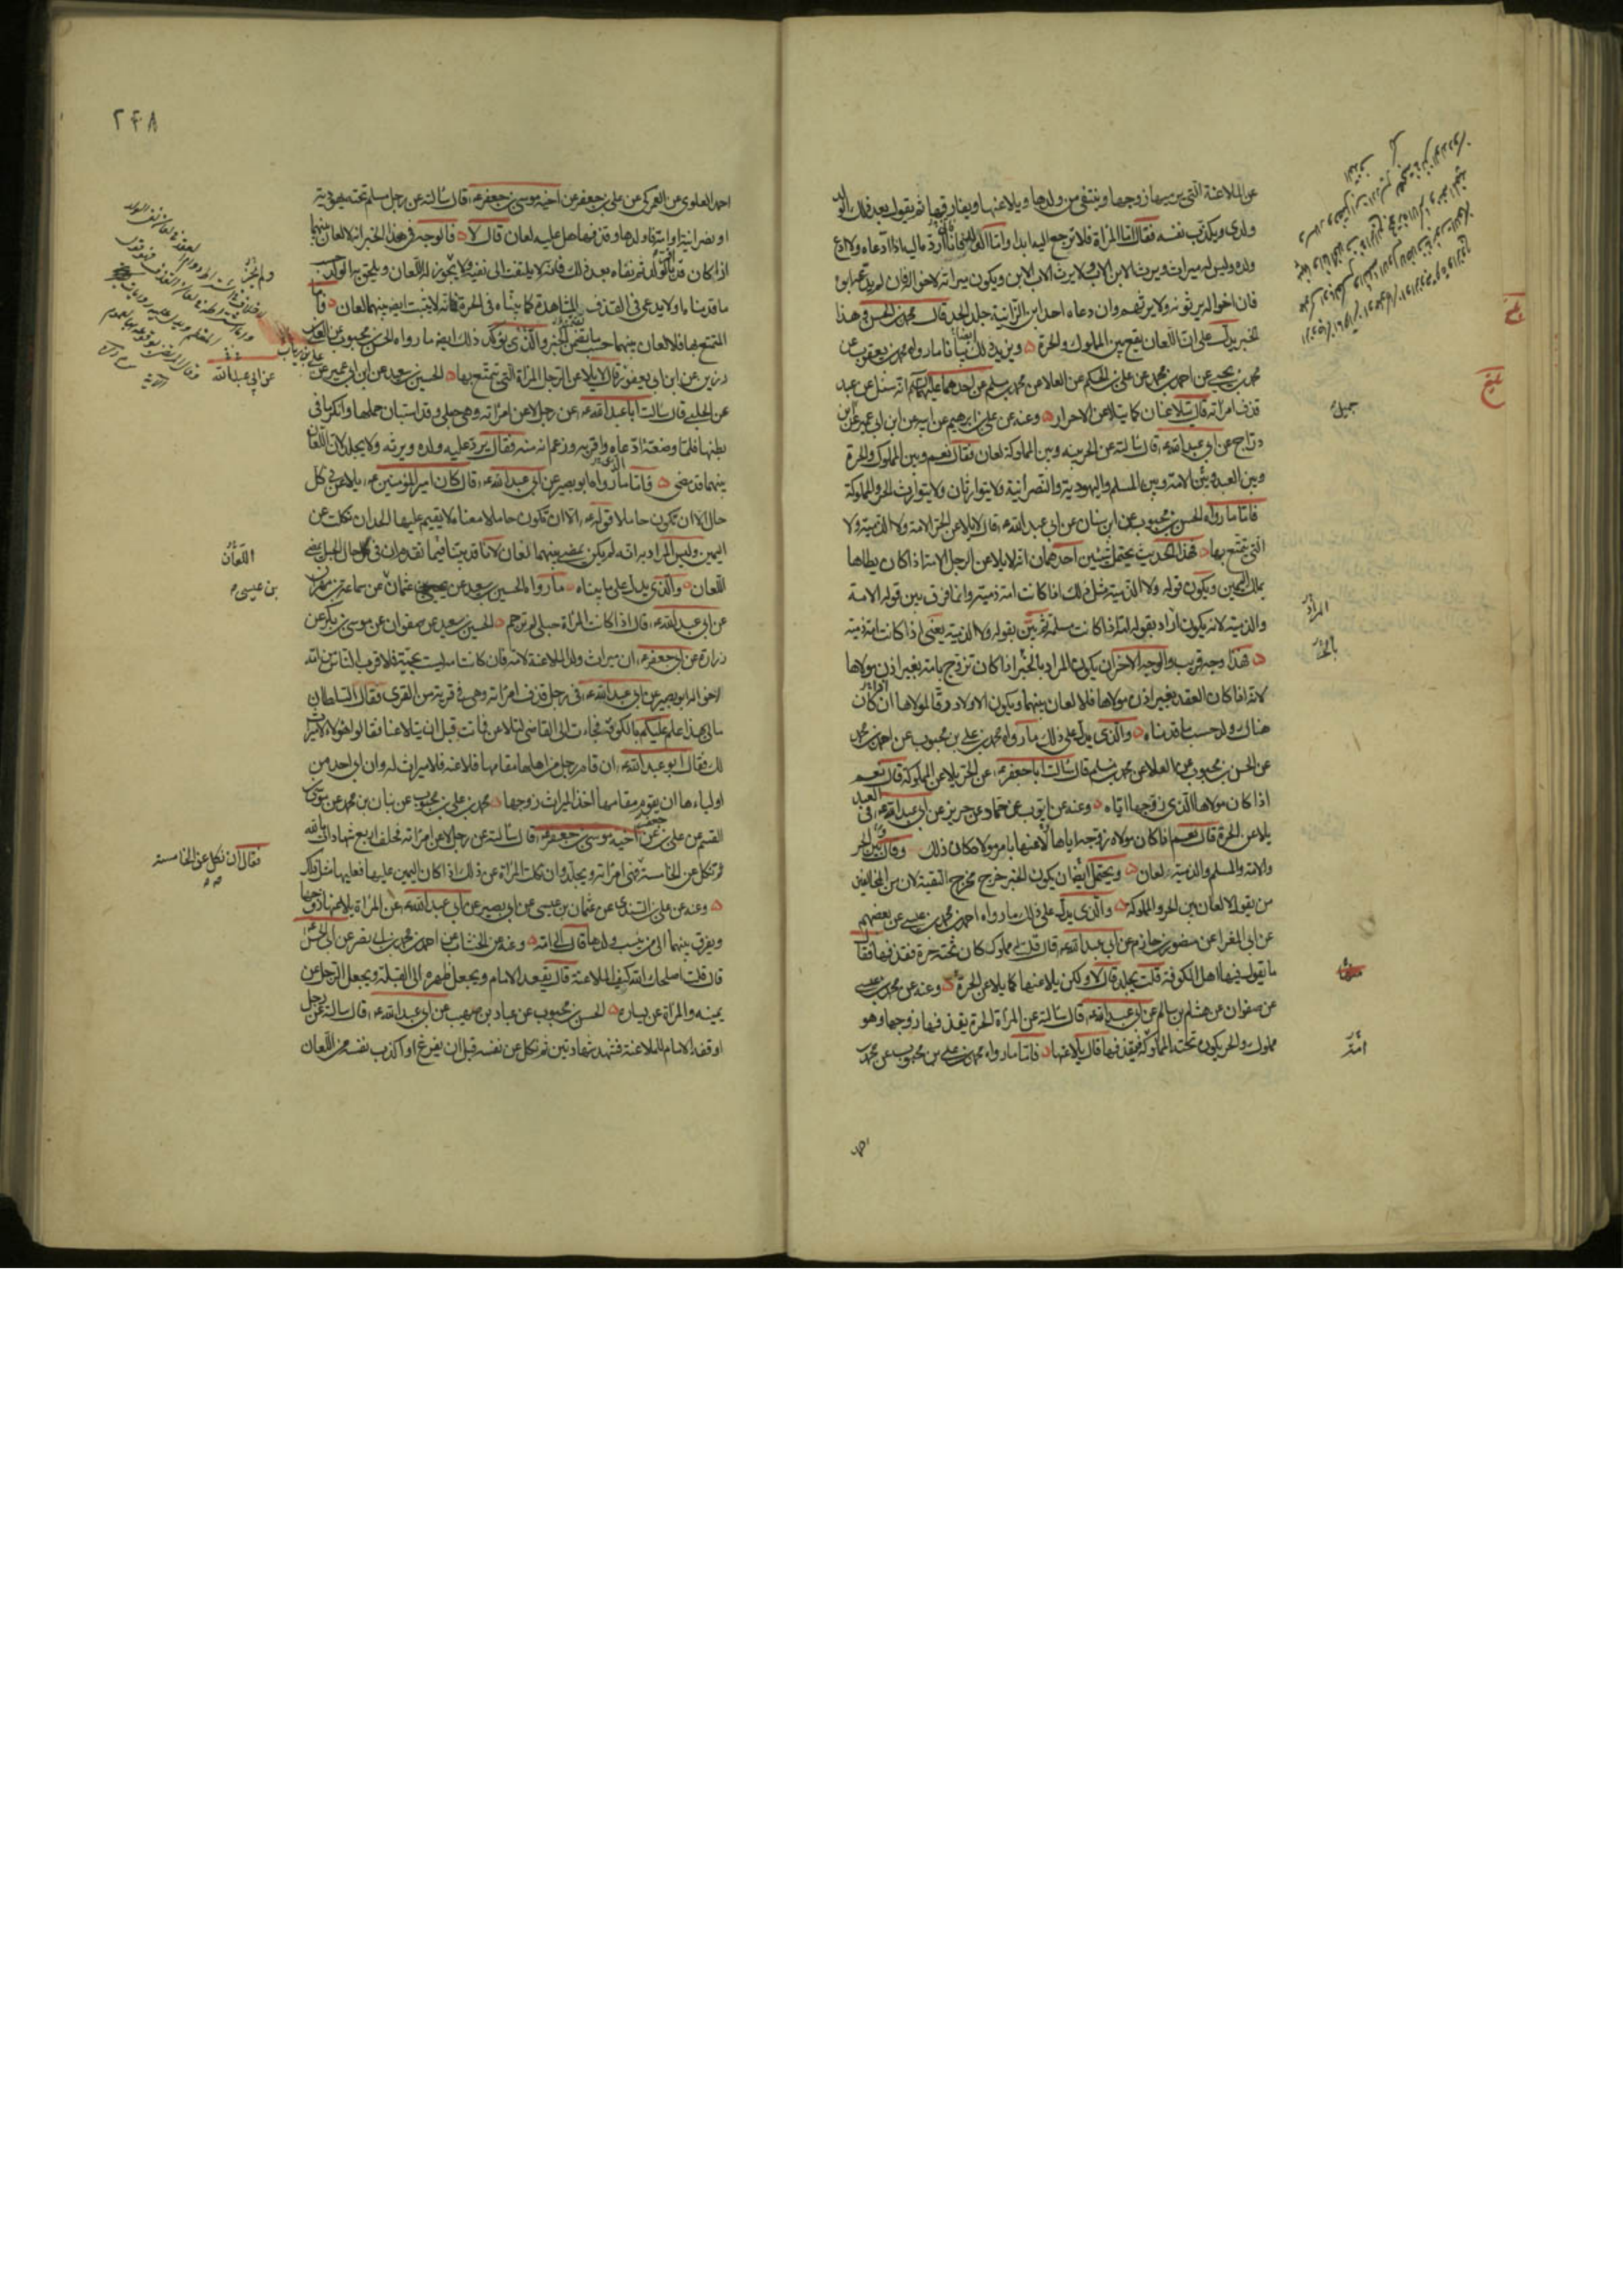 عن الملاعنة التي يرميها زوجها وينتفي من ولدها ويلاعنها ويفارقها ثم يقول بعد ذلك الولد
ولدي ويكذب نفسه فقال اما المراة فلا ترجع اليه ابدا واما الولد فانا ارده اليه اذا ادعاه ولا ادع
ولده وليس له ميراث ويرث الابن الاب ولا يرث الاب الابن ويكون ميراثه لاخواله فان لم يدعه ابوه
فان اخواله يرثونه ولا يرثهم وان دعاه احد ابن الزانية جلد الحد قال محمد بن الحسن فهذا
الخبر يدل على ان اللعان يقع بين المملوك والحرة ويزيد ذلك بيانا ما رواه محمد بن يعقوب عن
محمد بن يحيى عن احمد بن محمد عن علي بن الحكم عن العلا عن محمد بن مسلم عن احدهما عليهما السلم انه سئل عن عبد
قذف امراته قال يتلاعنان كما يتلاعن الاحرار وعنه عن علي بن ابرهيم عن ابيه عن ابن ابي عمير عن
دراج عن ابي عبد الله ع قال سالته عن الحر بينه وبين المملوكة لعان فقال نعم وبين المملوك والحرة
وبين العبد وبين الامة وبين المسلم واليهودية والنصرانية ولا يتوارثان ولا يتوارث الحر والمملوكة
فاما ما رواه الحسن بن محبوب عن ابن سنان عن ابي عبد الله ع قال لا يلاعن الحر الامة ولا الذمية ولا
التي يتمتع بها فهذا الحديث يحتمل شيئين احدهما انه لا يلاعن الرجل الامة اذا كان يطاها
بملك اليمين ويكون قوله ولا الذمية مثل ذلك اذا كانت امة ذمية وانما فرق بين قوله الامة
والذمية لانه يكون اراد بقوله امة اذا كانت مسلمة ثم بين بقوله ولا الذمية يعني اذا كانت امة ذمية
هذا وجه قريب والوجه الاخر ان يكون المراد بالخبر اذا كان تزوج بامة بغير اذن مولاها
لانه اذا كان العقد بغير اذن مولاها فلا لعان بينهما ويكون الاولاد رقا لمولاها ان كان
هناك ولد حسب ما قدمناه والذي يدل على ذلك ما رواه محمد بن علي بن محبوب عن احمد بن محمد
عن الحسن بن محبوب عن العلا عن محمد بن مسلم قال سالت ابا جعفر ع عن الحر يلاعن المملوكة قال نعم
اذا كان مولاها الذي زوجها اياه وعنه عن ايوب عن حماد عن حريز عن ابي عبد الله ع في العبد
يلاعن الحرة قال نعم اذا كان مولاه زوجه اياها لاعنها بامر مولاه كان ذلك وقال بين الحر
والامة والمسلم والذمية لعان ويحتمل ايضا ان يكون الخبر خرج مخرج التقية لان من المخالفين
من يقول لا لعان بين الحر والمملوكة والذي يدل على ذلك ما رواه احمد بن محمد بن عيسى عن بعضهم
عن ابي المغرا عن منصور بن حازم عن ابي عبد الله ع قال قلت له مملوك كان تحته حرة فقذفها فقال
ما يقول فيها اهل الكوفة قلت يجلد قال لا ولكن يلاعنها كما يلاعن الحرة وعنه عن محمد بن عيسى
عن صفوان عن هشام بن سالم عن ابي عبد الله ع قال سالته عن المراة الحرة يقذفها زوجها وهو
مملوك والحر يكون تحته المملوكة فيقذفها قال يلاعنها فاما ما رواه محمد بن علي بن محبوب عن محمد
جميل
المراد
بالخبر
امة
بلغ
بلغ
٢٤٨
احمد العلوي عن العمركي عن علي بن جعفر عن اخيه موسى بن جعفر ع قال سالته عن رجل مسلم تحته يهودية
او نصرانية او امة فاولدها وقذفها هل عليه لعان قال لا فالوجه في هذا الخبر انه لا لعان بينهما
اذا كان قد اقر بالولد ثم نفاه بعد ذلك فانه لا يلتفت الى نفيه ولا يجوز له اللعان ويلحق به الولد حسب
ما قدمناه ولا يدعي في القذف المشاهدة كما بيناه في الحرة فانه لا يثبت ايضا بينهما لعان فاما
المتمتع بها فلا لعان بينهما حسب ما تضمن الخبر والذي يؤكد ذلك ايضا ما رواه الحسن بن محبوب عن العلا بن
رزين عن ابن ابي يعفور قال لا يلاعن الرجل المراة التي يتمتع بها الحسين بن سعيد عن ابن ابي عمير عن
عن الحلبي قال سالت ابا عبد الله ع عن رجل لاعن امراته وهي حبلى وقد استبان حملها وانكر ما في
بطنها فلما وضعت ادعاه واقر به وزعم انه منه فقال يرد عليه ولده ويرثه ولا يجلد لان اللعان
بينهما قد مضى فاما ما رواه ابو بصير عن ابي عبد الله ع قال كان امير المؤمنين ع يلاعن في كل
حال الا ان تكون حاملا فقوله ع الا ان تكون حاملا معناه لا يقيم عليها الحد ان نكلت عن
اليمين وليس المراد به انه لم يكن يمضي بينهما اللعان لانا قد بينا فيما تقدم ان في حال الحبل يمضي
اللعان والذي يدل على ما بيناه ما رواه الحسين بن سعيد عن عثمان عن سماعة بن مهران
عن ابي عبد الله ع قال اذا كانت المراة حبلى لم ترجم الحسين بن سعيد عن صفوان عن موسى بن بكر عن
زرارة عن ابي جعفر ع ان ميراث ولد الملاعنة لامه فان كانت امه ليست بحية فلاقرب الناس من امه
لاخواله ابو بصير عن ابي عبد الله ع في رجل قذف امراته وهي في قرية من القرى فقال السلطان
ما لي بهذا علم عليكم بالكوفة فجاءت الى القاضي لتلاعن فماتت قبل ان يتلاعنا فقالوا هؤلاء لا ميراث
لك فقال ابو عبد الله ع ان قام رجل من اهلها مقامها فلاعنه فلا ميراث له وان ابى احد من
اولياءها ان يقوم مقامها اخذ الميراث زوجها محمد بن علي بن محبوب عن بنان بن محمد عن موسى بن
القسم عن علي بن جعفر عن اخيه موسى بن جعفر ع قال سالته عن رجل لاعن امراته فحلف اربع شهادات بالله
ثم نكل عن الخامسة فهي امراته ويجلد وان نكلت المراة عن ذلك اذا كان اليمين عليها فعليها مثل ذلك
وعنه عن علي بن السندي عن عثمان بن عيسى عن ابي بصير عن ابي عبد الله ع عن المراة يلاعنها زوجها
ويفرق بينهما الى من ينسب ولدها قال الى امه وعنه عن الخشاب عن احمد بن محمد بن ابي نصر عن ابي الحسن
قال قلت اصلحك الله كيف الملاعنة قال يقعد الامام ويجعل ظهره الى القبلة ويجعل الرجل عن
يمينه والمراة عن يساره الحسن بن محبوب عن عباد بن صهيب عن ابي عبد الله ع قال سالته عن رجل
اوقفه الامام للملاعنة فشهد شهادتين ثم نكل عن نفسه قبل ان يفرغ او اكذب نفسه من اللعان
علي بن رئاب
عن ابي عبد الله
اللعان
بن عيسى
فقال ان نكل عن الخامسة